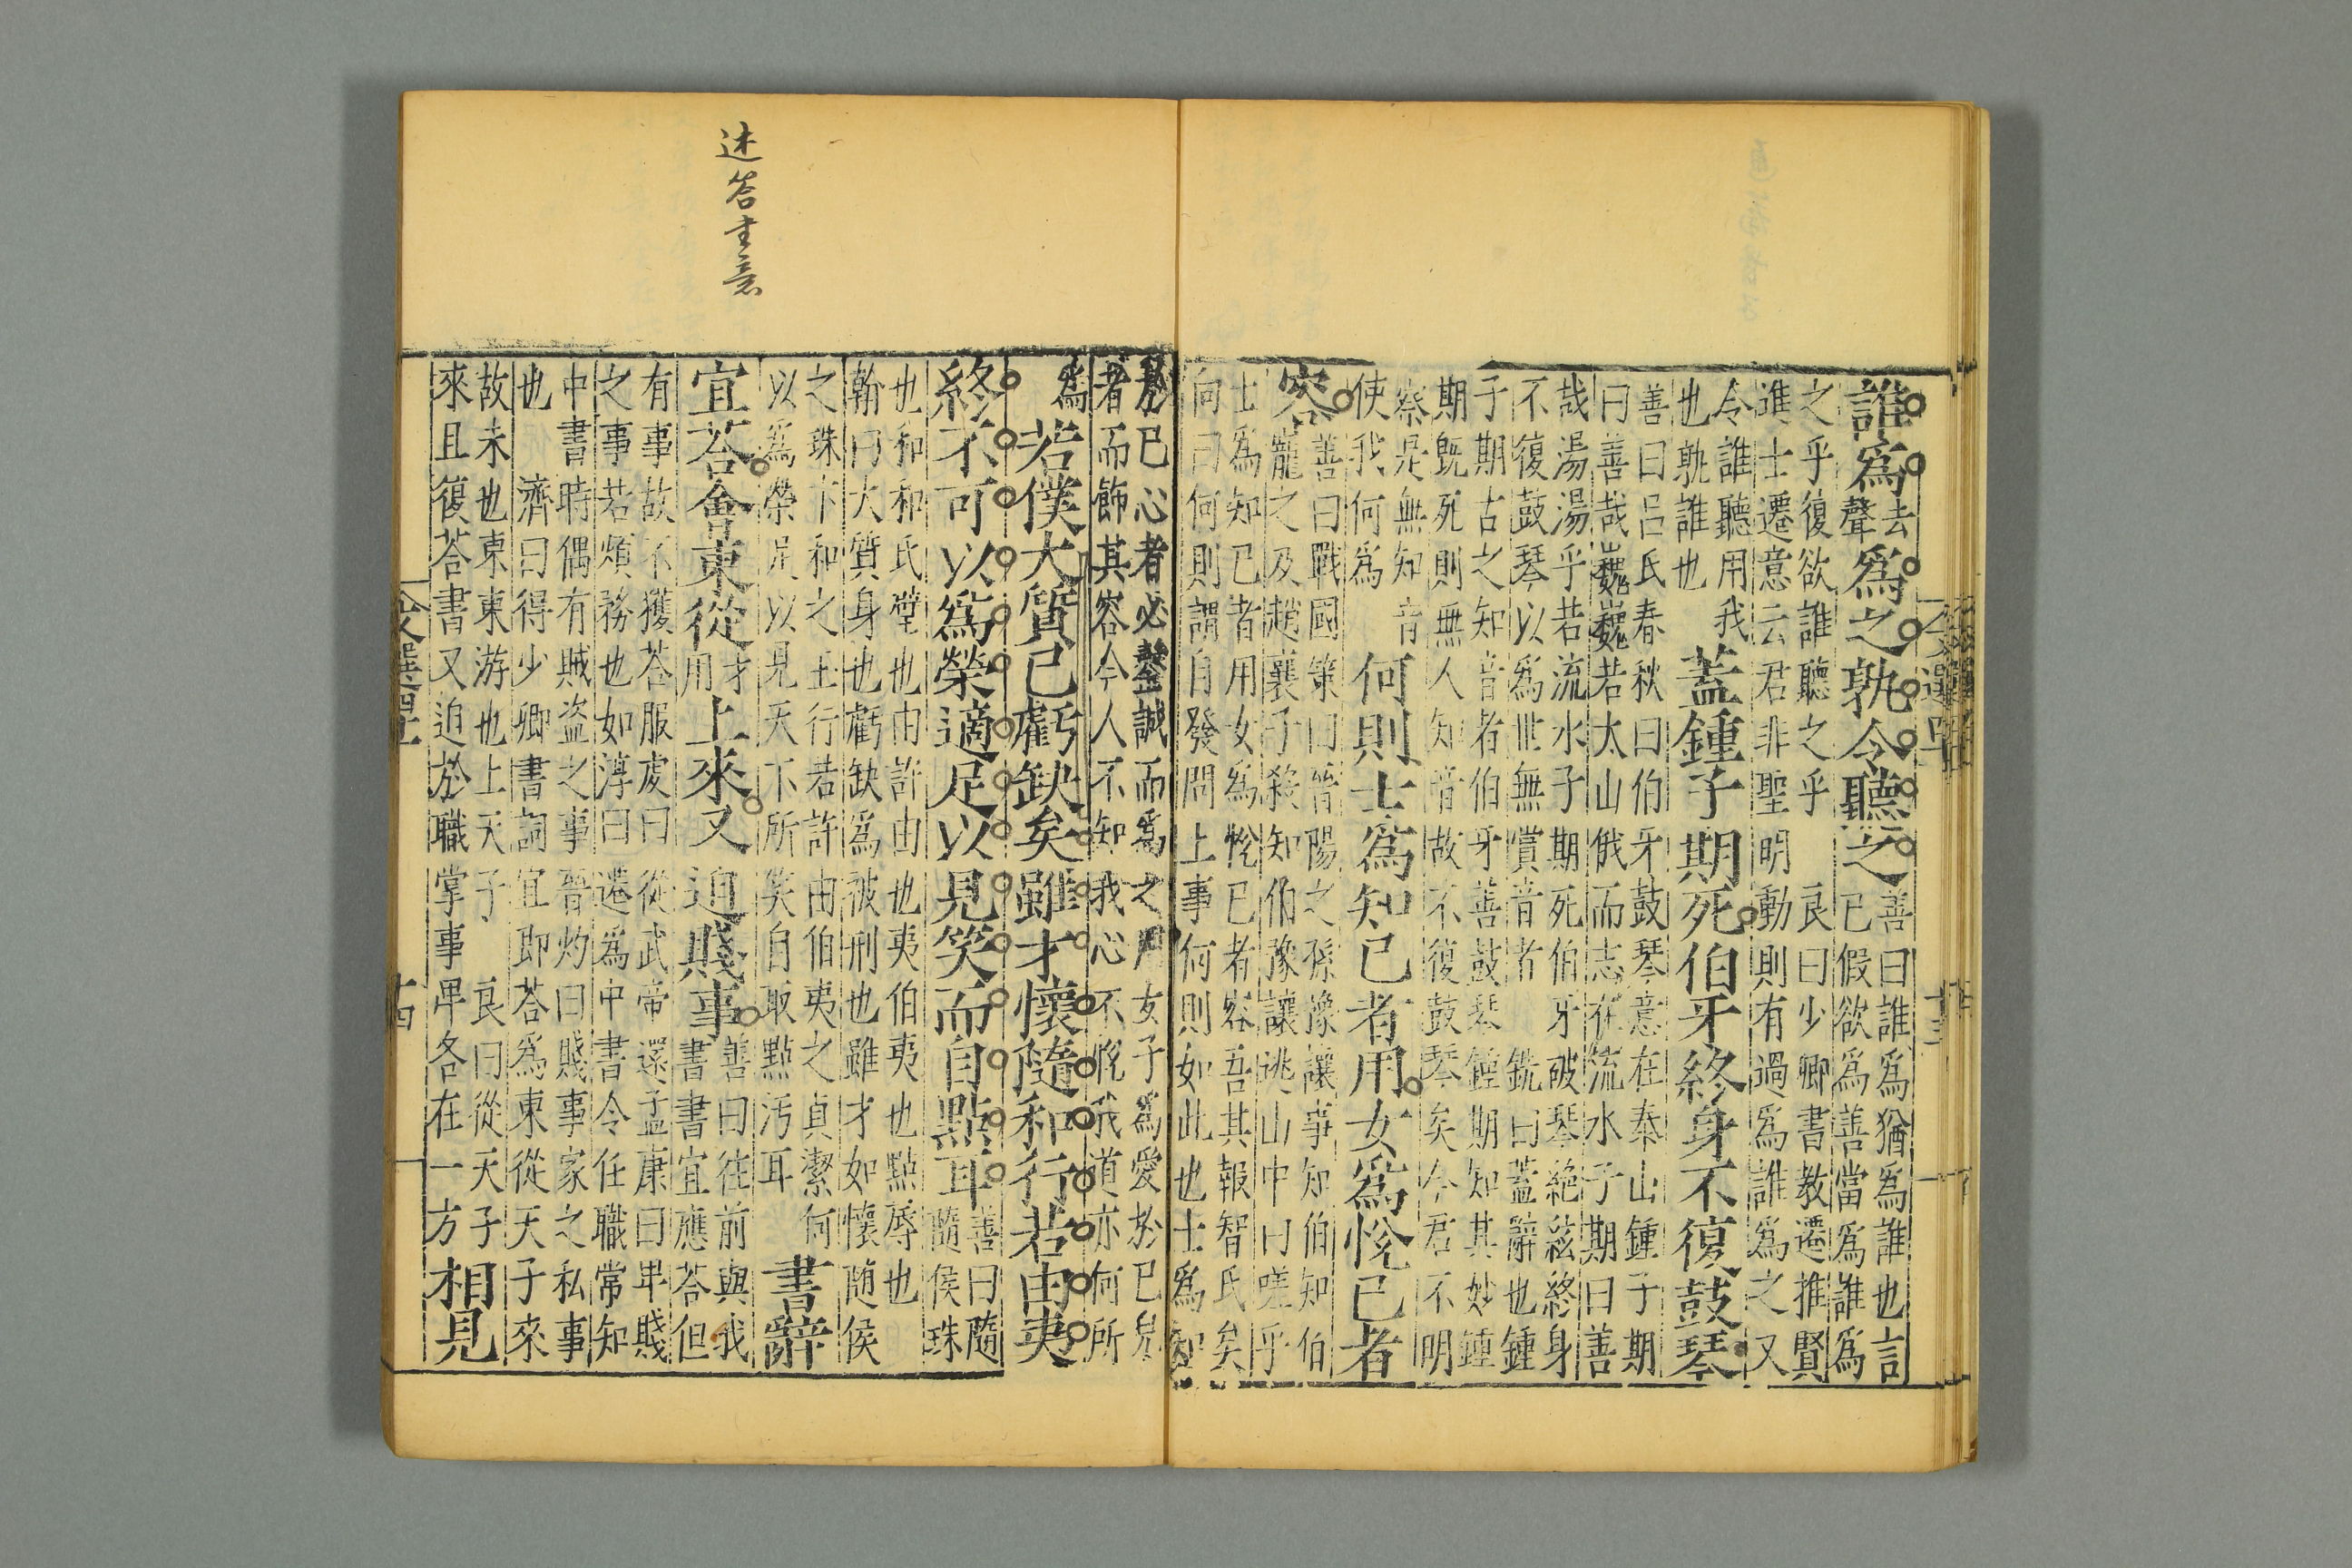 誰爲
去
聲
爲之孰令聽之
善曰誰爲猶爲誰也言
已假欲爲善當爲誰爲
之乎復欲誰聽之乎　良曰少卿書教遷推賢
進士遷意云君非聖明動則有過爲誰爲之又
令誰聽用我
也孰誰也
蓋鍾子期死伯牙終身不復鼓琴
善曰呂氏春秋曰伯牙鼓琴意在泰山鍾子期
曰善哉巍巍若太山俄而志在流水子期曰善
哉湯湯乎若流水子期死伯牙破琴絶絃終身
不復鼓琴以爲世無賞音者　銑曰蓋辭也鍾
子期古之知音者伯牙善鼓琴鍾期知其妙鍾
期既死則無人知音故不復鼓琴矣今君不明
察是無知音
使我何爲
何則士爲知已者用女爲恱已者
容
善曰戰國策曰晉陽之孫豫讓事知伯知伯
寵之及趙襄子殺知伯豫讓逃山中曰嗟乎
士爲知已者用女爲恱已者容吾其報智氏矣
向曰何則謂自發問上事何則如此也士爲知
述答書意
於已心者必鏧誠而爲之用女子爲愛於已皃
者而飾其容今人不知我心不恱我道亦何所
爲
若僕大質已虧缺矣雖才懷隨和行若由夷
終不可以爲榮適足以見笑而自點耳
善曰隨
隨侯珠
也和和氏璧也由許由也夷伯夷也點辱也
翰曰大質身也虧缺爲被刑也雖才如懷随侯
之珠卞和之玉行若許由伯夷之貞潔何
以爲榮足以見天下所笑自取點汚耳
書辭
宜荅會東從
才
用
上來又迫賤事
善曰往前與我
書書宜應荅但
有事故不獲荅服虔曰　從武帝還孟康曰卑賤
之事若煩務也如淳曰　遷爲中書令任職常知
中書時偶有賊盗之事晉灼曰賤事家之私事
也　濟曰得少卿書詞宜即荅爲東從天子來
故未也東東游也上天子　良曰從天子
來且復荅書又迫於職掌事畢各在一方
相見
十四